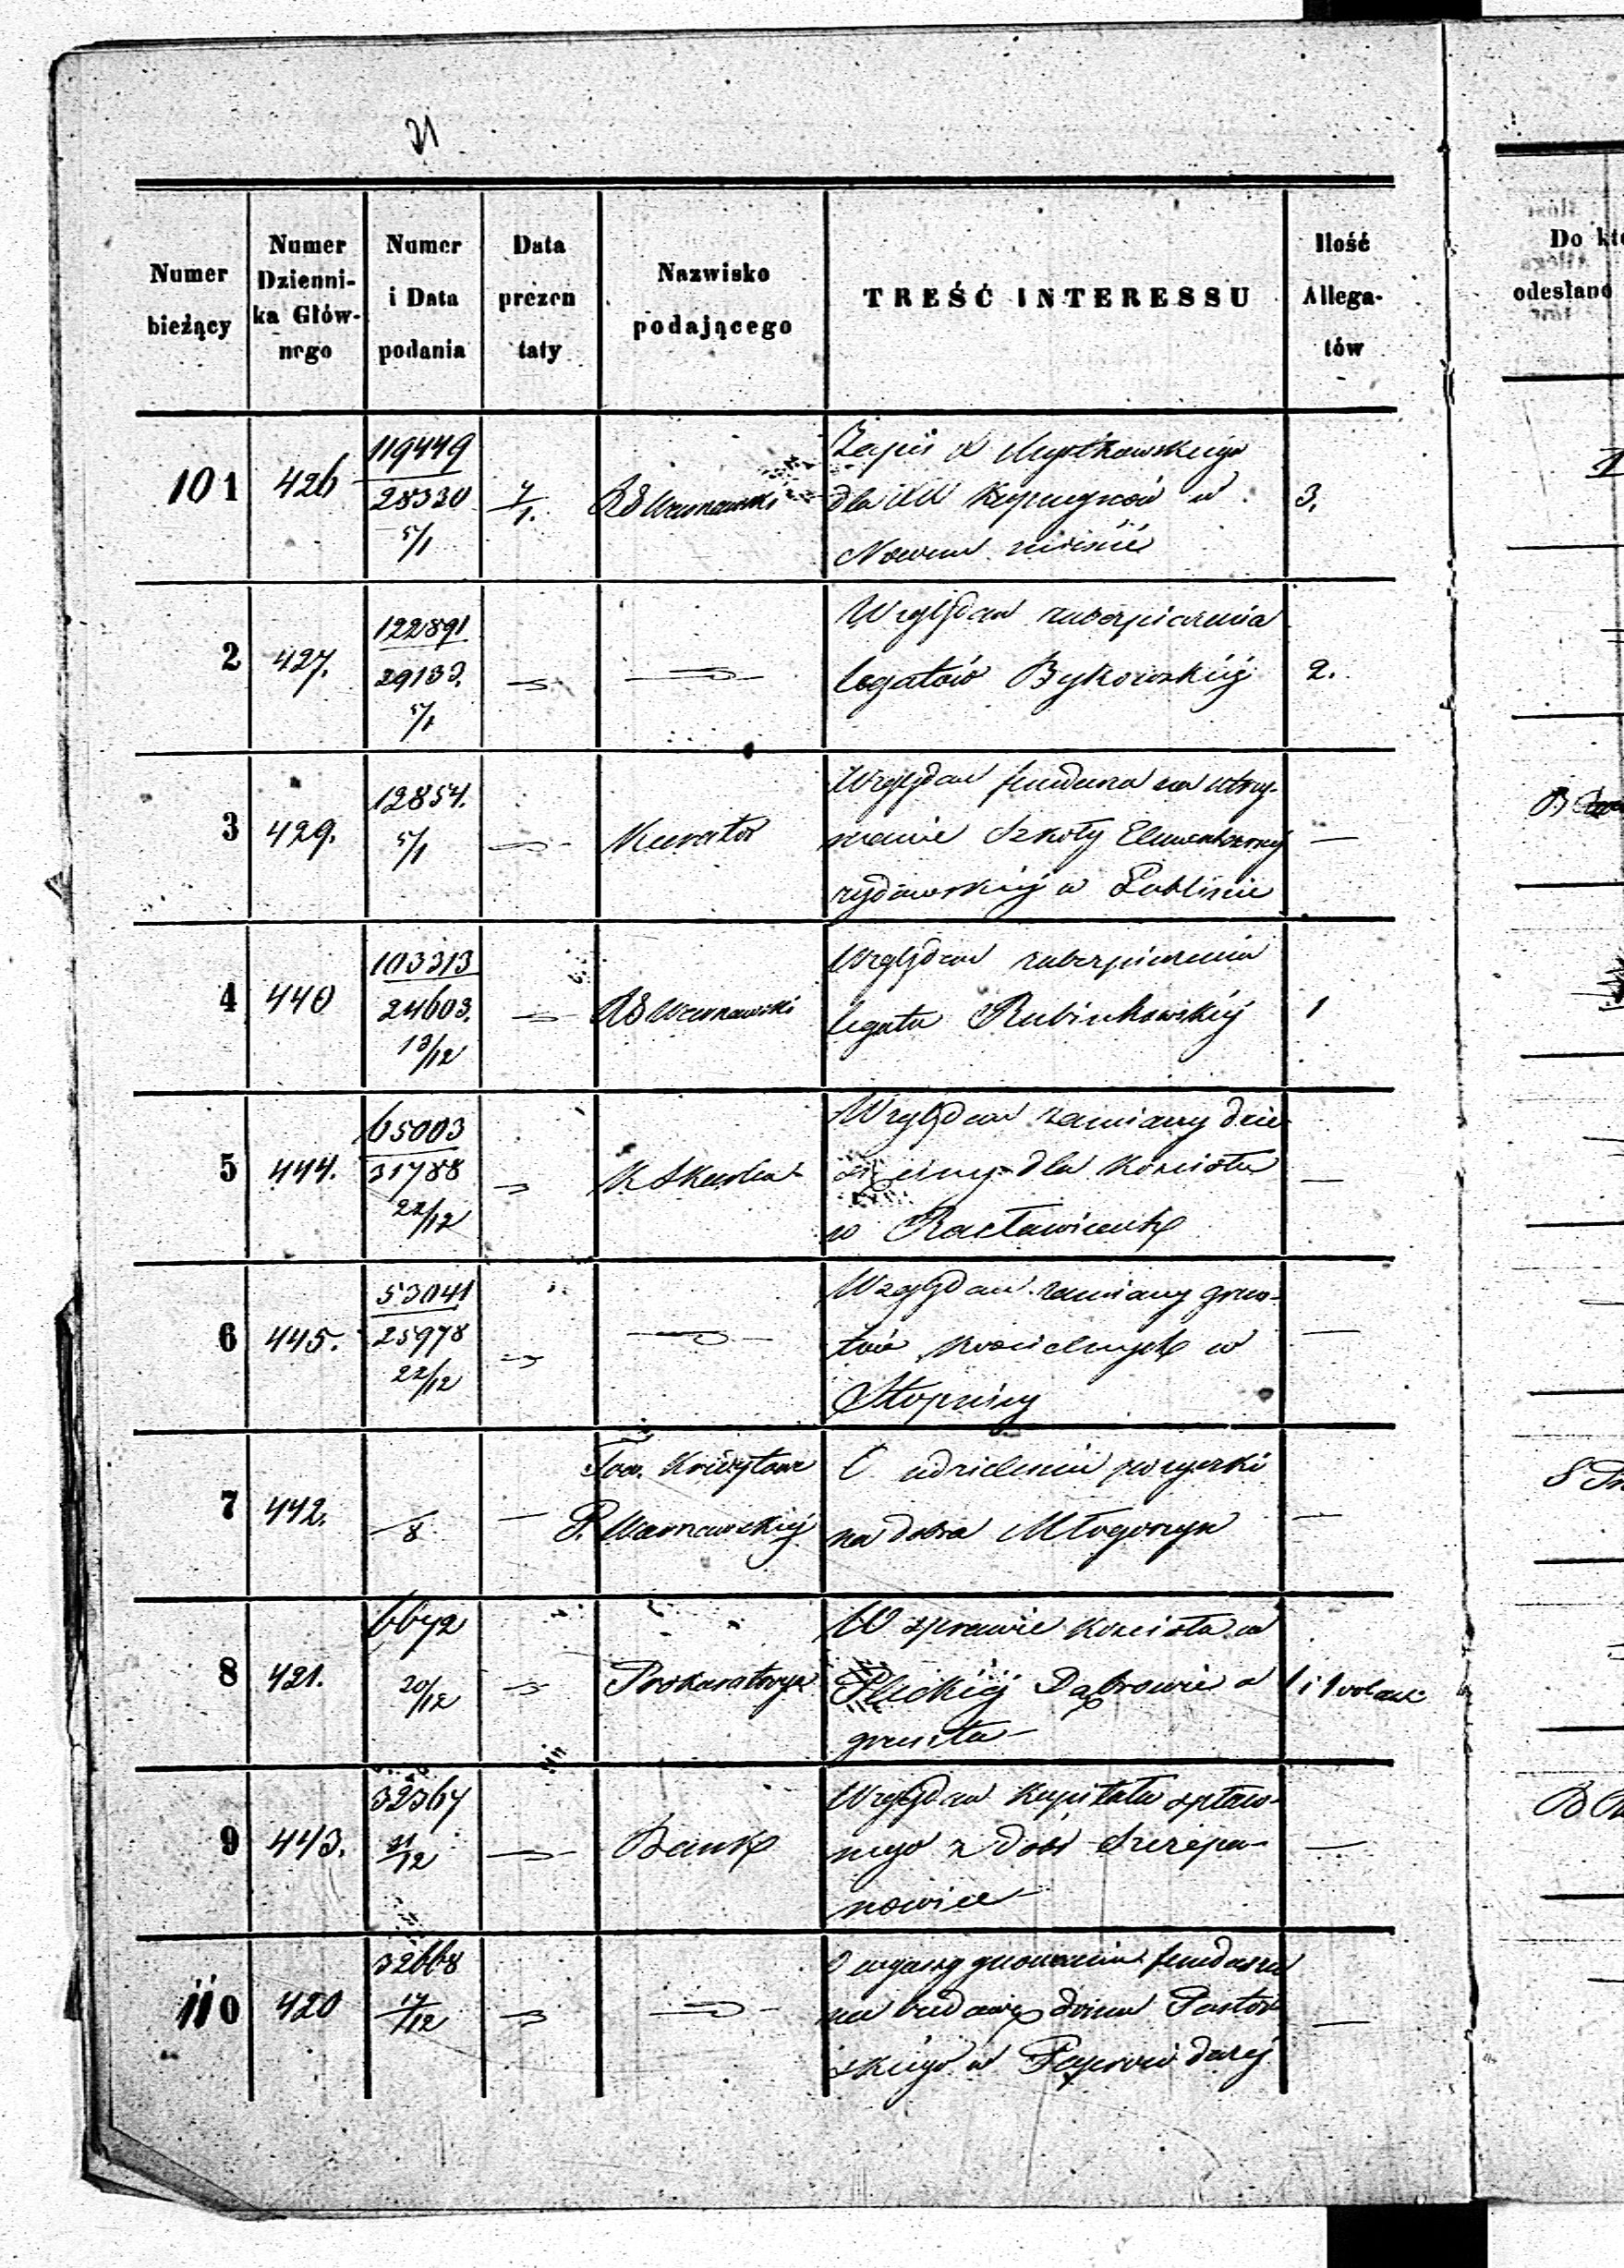 21
Numer bieżący | Numer Dzienni-ka Głów-nego | Numer i Data podania | Data prezen taty | Nazwisko podającego | TREŚĆ INTERESSU | Ilość Allega-tów
101 | 426 | 119449 / 28330 5/1 | 7/1. | RG Warszawski | Zapis
dla XX Kapucynów w | 3.
Nowem mieście
2 | 427. | 122891 / 29133. 5/1 | | | Względem zabezpieczenia
legatów Bykowskiéj | 2.
3 | 429. | 12854. 5/1 | | Kurator | Względem fundusza na utrzy-
manie Szkoły Elementarnéj | —
żydowskiéj w Lublinie
4 | 440 | 103313 / 24603. 13/12 | | RG Warszawski | Względem zabezpieczenia
legatu Rubinkowskiéj | 1
5 | 444. | 65003 / 31788 22/12 | | K Skarbu | Względem zamiany dzie-
sięciny dla Kościoła | —
w Racławicach
6 | 445. | 53041 / 25978 22/12 | | | Względem zamiany grun-
tów kościelnych w | —
Stopnicy
7 | 442. | /8 | — | Tow. Kredytowe | O udzielenie pożyczki
P. Warszawskiéj | na dobra Młogoszyn | —
8 | 421. | 6672 20/12 | | Prokuratorya | W sprawie Kościoła w
Plickiéj Dąbrowie o | 1 i 1
grunta
9 | 443. | 32367 21/12 | | Bank | Względem Kapitału spław-
nego z dóbr Szczepa- | —
nowice
110 | 420 | 32668 17/12 | | | O wyasygnowanie funduszu
na budowę domu Pastor- | —
skiego w
Do
odesłano